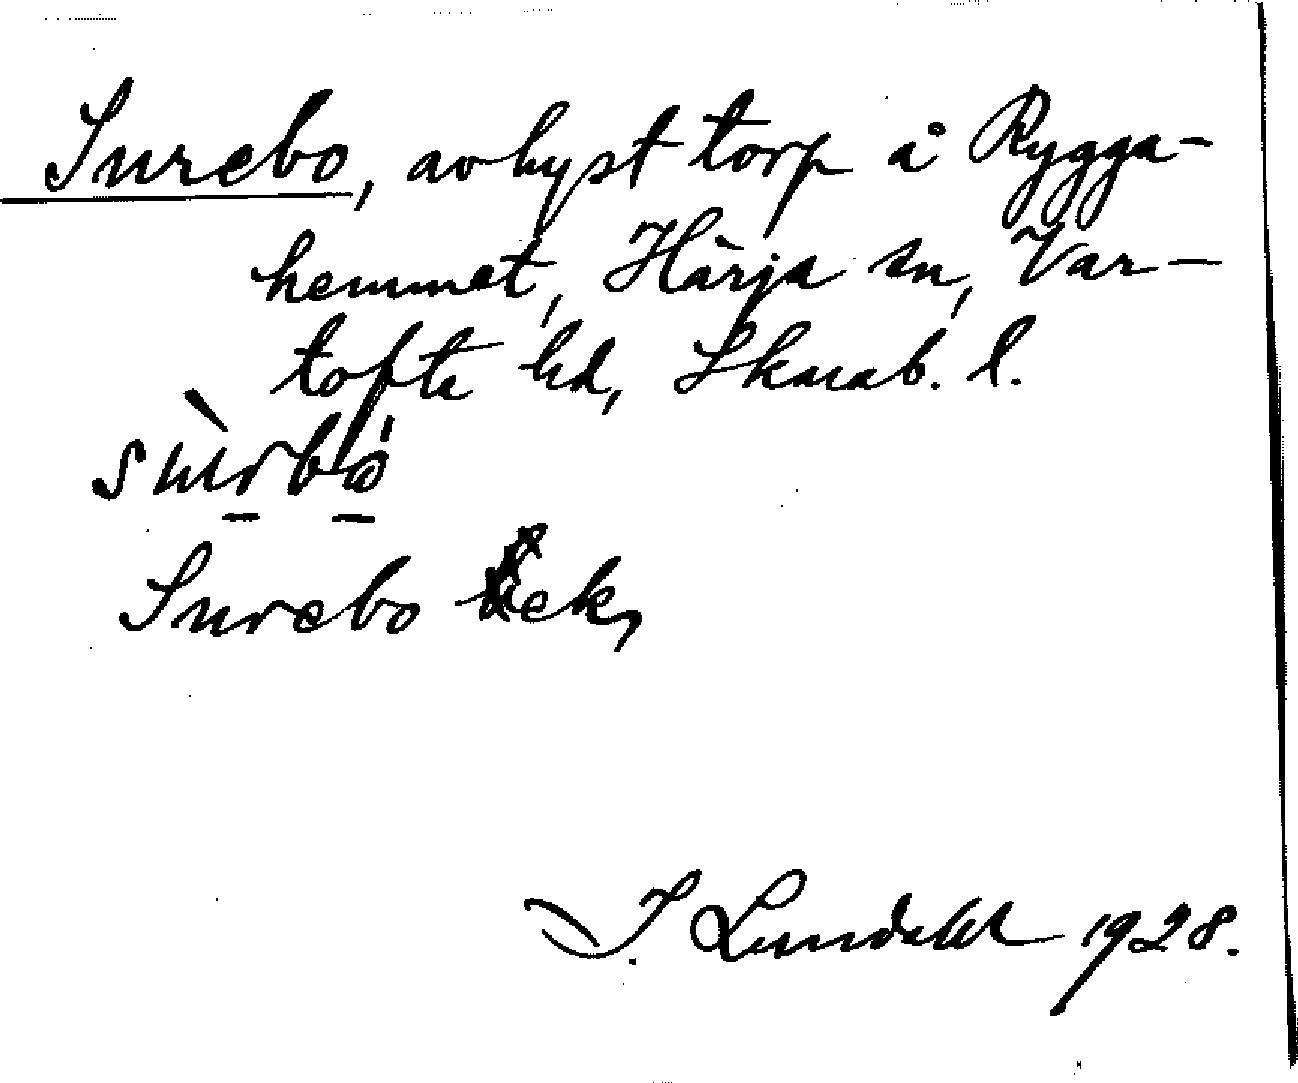 Surebo, avhyst torp å Rygga-
hemmet, Härja sn, Var-
tofte hd, Skarab. l.
Surebo Eck,
I. Lundahl 1928.